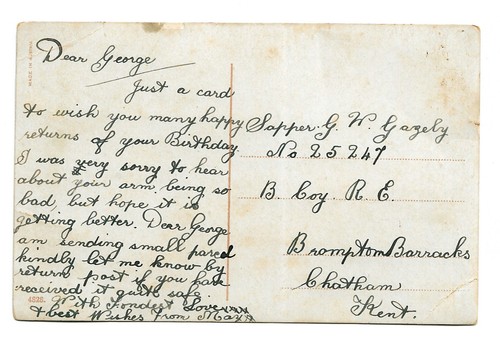 Dear George
Just a card
to wish you many happy
returns of your Birthday
I was very sorry to hear
about your arm, being so
bad, but hope it is
getting better. Dear George
am sending small parcel
kindly let me know by
return post if you have
received it quite safe
With Fondest Love xxx
& best Wishes From May x
4838.
Sapper G. W. Gazely
No 25247
B Coy R. E.
Brompton Barracks
Chatham
Kent.